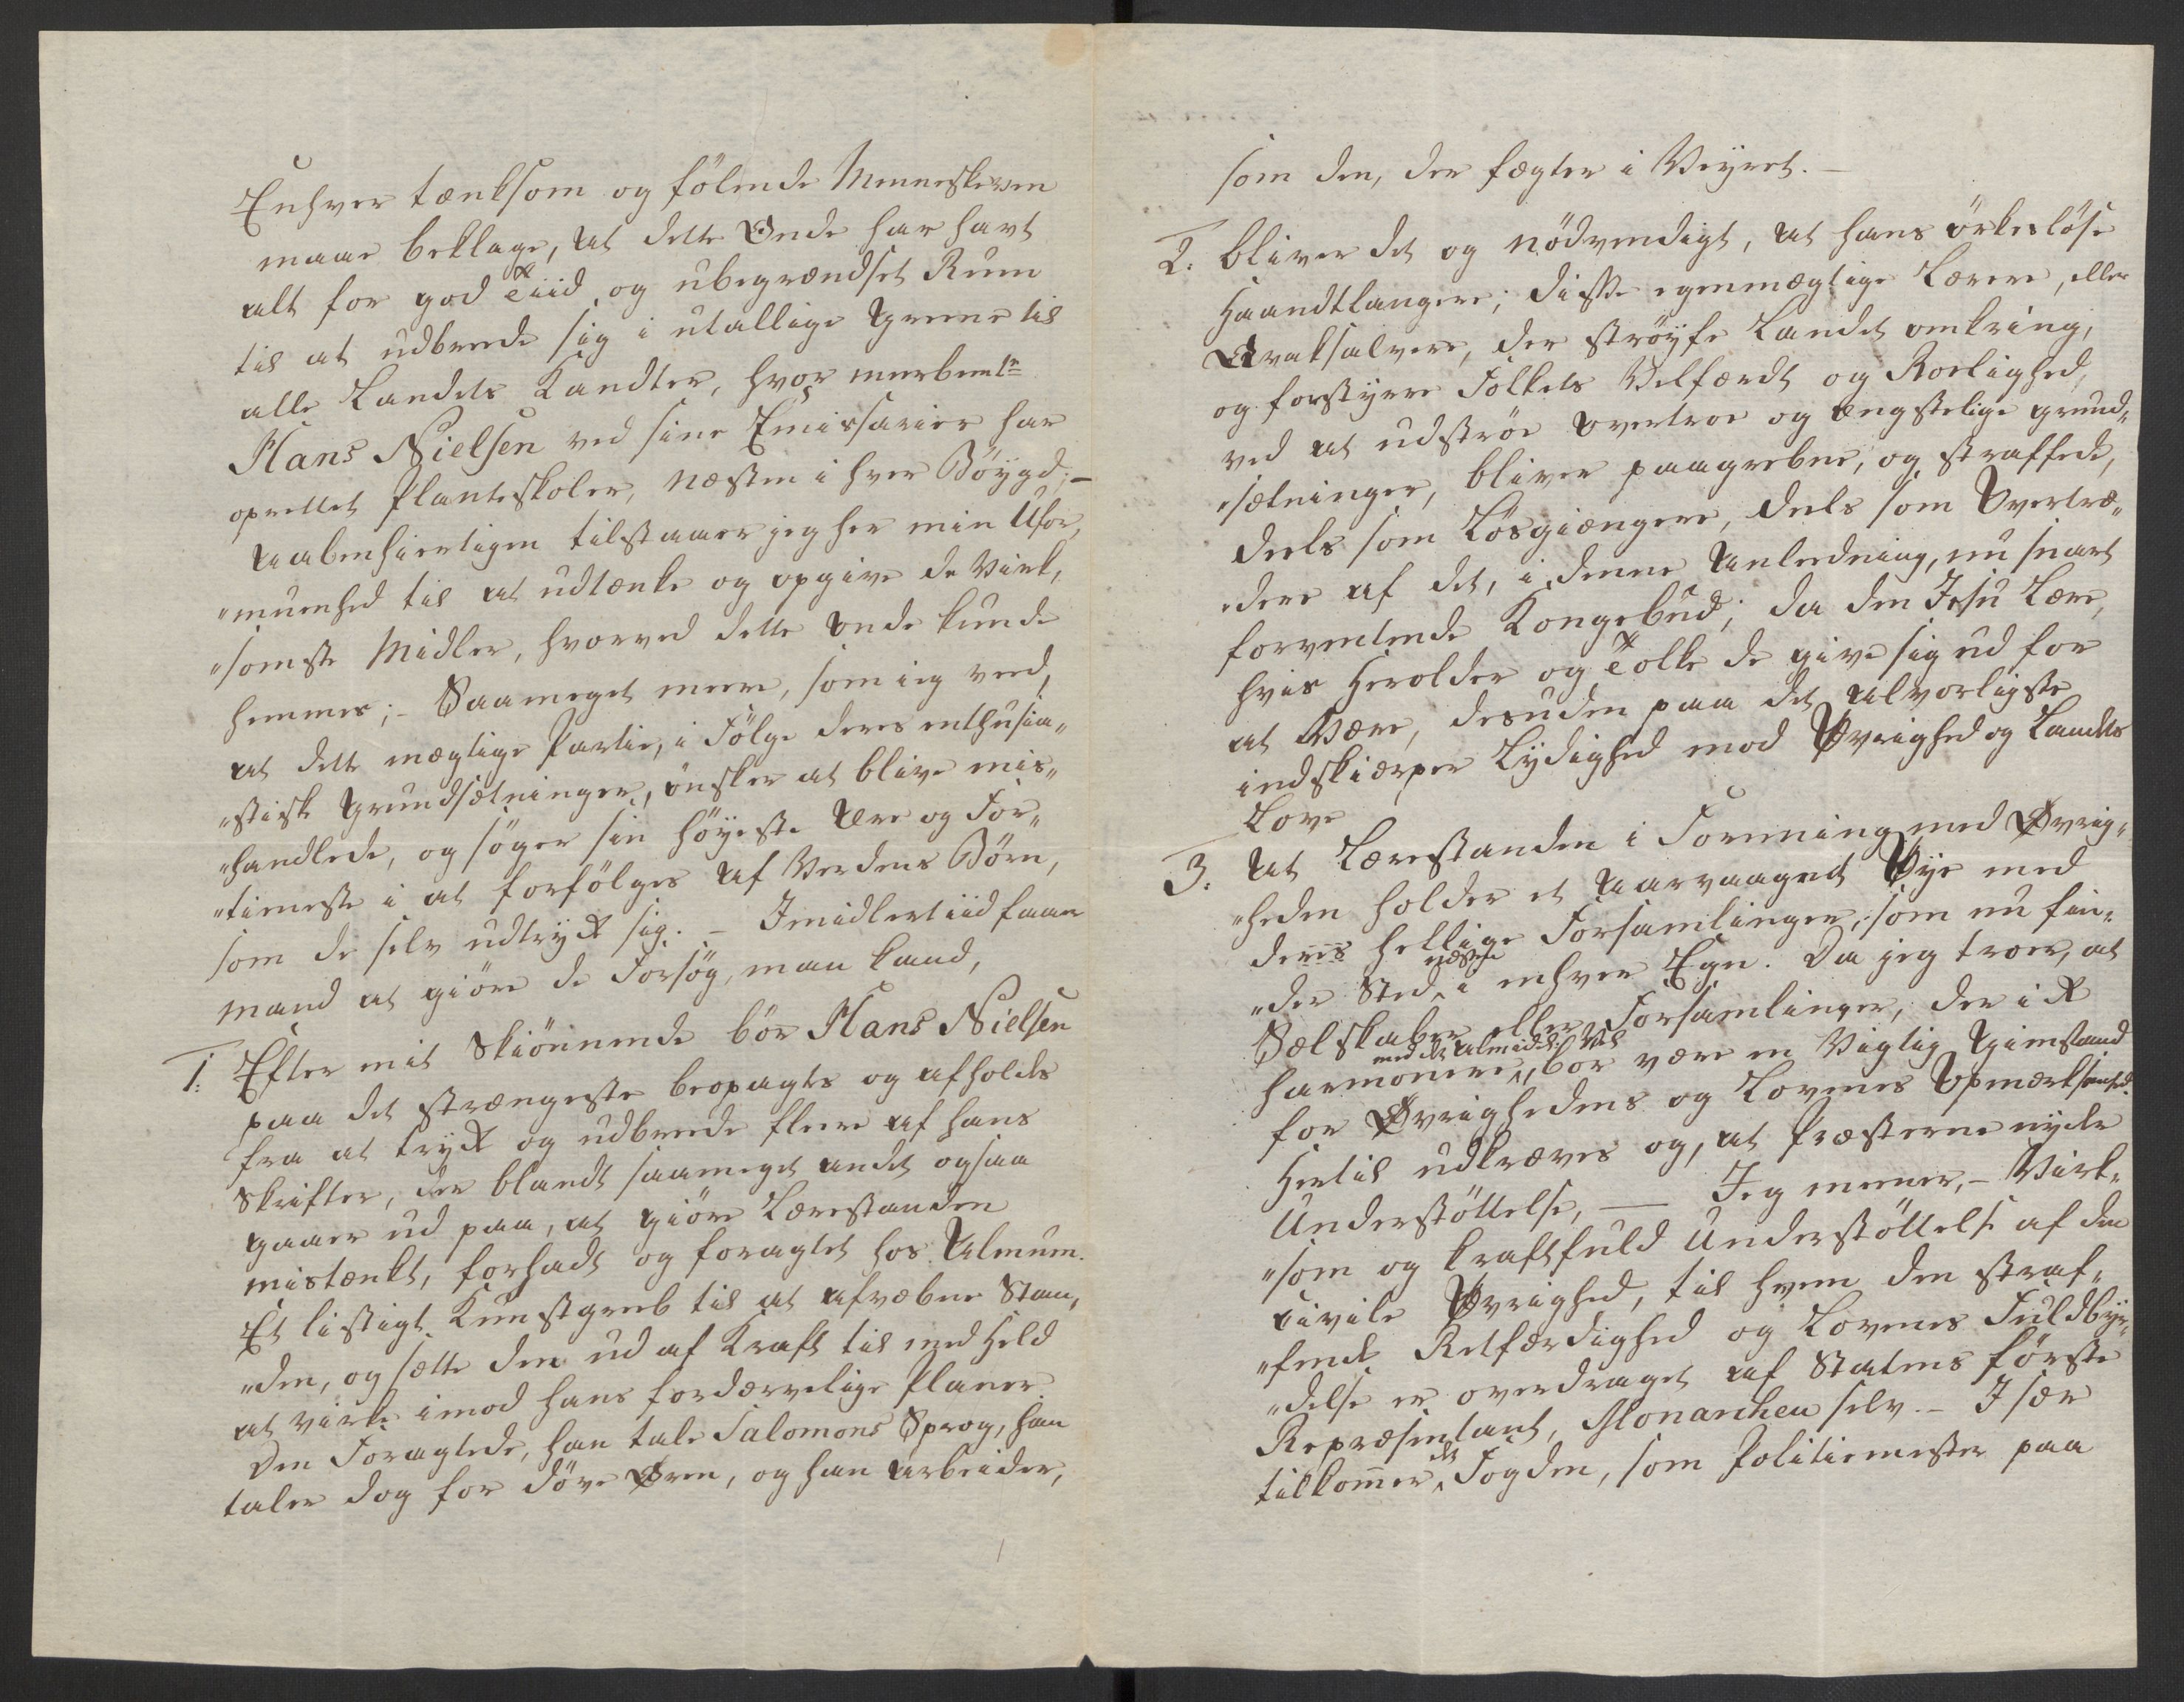 Enhver tænksom og følende Menneskeven
maae beklage, at dette Onde har havt
alt for god Tiid og ubegrændset Rum
til at udbrede sig i utallige Greene til
alle Landets Kandter, hvor meerbemte
Hans Nielsen ved sine Emissarier har
oprettet Planteskoler, næsten i hver Böÿgd; –
Aabenhiertigen tilstaaer jeg her min Ufor„
„muenhed til at udtænke og opgive de Virk„
„somste Midler, hvorved dette Onde kunde
hemmes; – Saameget meere, som jeg veed,
at dette mægtige Partie, i Fölge deres enthusia„
„stisk Grundsætninger, önsker at blive mis„
„handlede, og söger sin höÿeste Ære og For„
„tieneste i at forfölges af Verdens Börn,
som de selv udtryker sig. – Imidlertiid faaer
mand at giöre de Forsög, man kand,
1. Efter mit Skiönnende bör Hans Nielsen
paa det strængeste beopagtes og afholdes
fra at trykke og udbrede flere af hans
Skrifter, der blandt saameget andet ogsaa
gaaer ud paa, at giöre Lærestanden
mistænkt, forhadt og foragtet hos Almuen.
Et listigt Kunstgreb til at afvæbne Stan„
„den, og sætte den ud af Kraft til med Held
at virke imod hans fordærvelige Planer.
Den Foragtede, han tale Salomons Sprog, han
taler dog for döve Øren, og han arbeider,
som den, der fægter i Veÿret. –
2. bliver det og nödvendigt, at hans örkeslöse
Haandtlangere; disse egenmægtige Lærere, eller
Qvaksalvere, der ströÿfe Landet omkring,
og forstÿrre Folkets Velfærdt og Roelighed,
ved at udströe Overtroe og ængstelige grund„
„sætninger, bliver paagrebne, og straffede,
deels som Lösgiængere, deels som Overtræ„
„dere af det, i denne Anledning, nu snart
forventende Kongebud; da den Jesu Lære,
hvis Herolder og Tolke de give sig ud for
at være, desuden paa det alvorligste
indskiærper Lÿdighed mod Øvrighed og Landets
Love
3. At Lærestanden i Forening med Øvrig„
„heden holder et aarvaagent Øÿe med
deres hellige Forsamlinger, som nu fin„
„der Sted næsten i enhver Egn. Da jeg troer, at
Sælskaber eller Forsamlinger, der ikke
harmonere med det almindel: Vel, bör være en Vigtig Gienstand
for Øvrighedens og Lovenes Opmærksomhed.
Hertil udkræves og, at Præsterne nyde
Understöttelse, — Jeg mener, – Virk„
„som og kraftfuld Understöttelse af den
civile Øvrighed, til hvem den straf„
„fende Retfærdighed og Lovenes Fuldbyr„
„delse er overdraget af Statens förste
Repræsentant, Monarchen selv. – Især
tilkommer det Fogden, som Politiemester paa